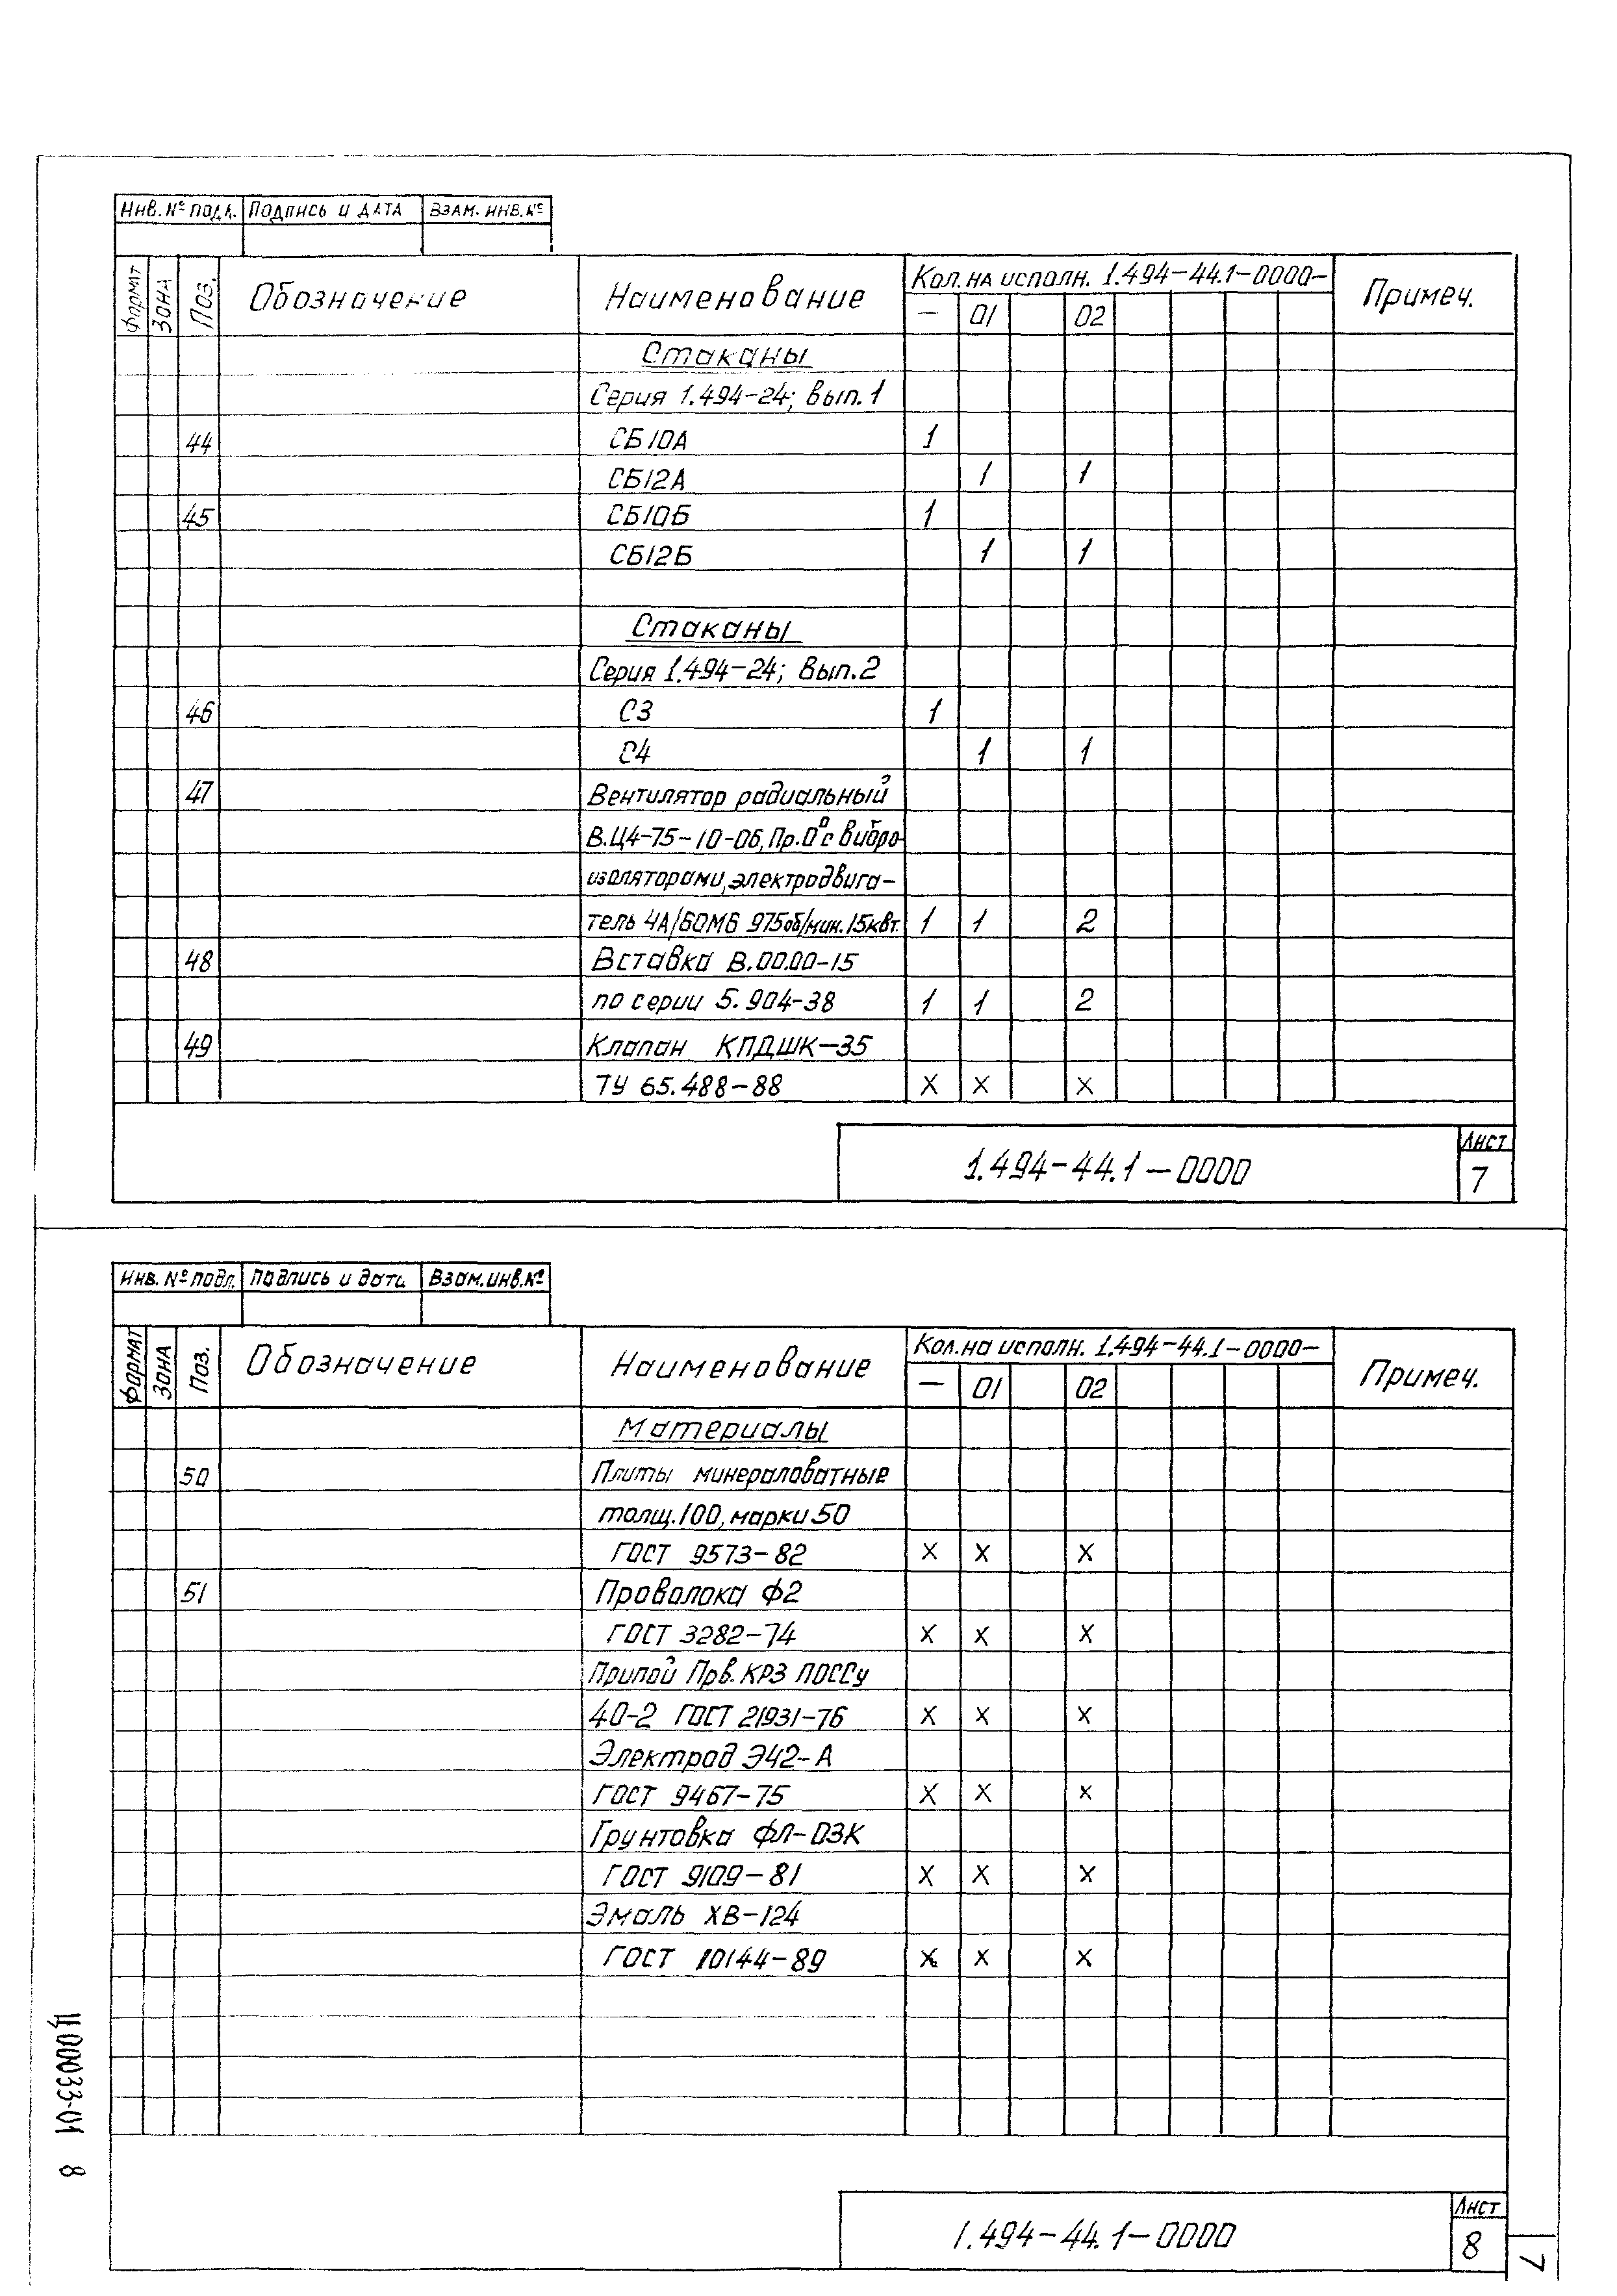 Инв. № подл. Подпись и дата Взам. инв. №
Формат Зона Поз. Обозначение Наименование Кол. на исполн. 1.494-44.1-0000- Примеч.
— 01 02
Стаканы
Серия 1.494-24; Вып. 1
44 СБ10А 1
СБ12А 1 1
45 СБ10Б 1
СБ12Б 1 1
Стаканы
Серия 1.494-24; Вып. 2
46 С3 1
С4 1 1
47 Вентилятор радиальный
В.Ц4-75-10-06, Пр.0° с вибро-
изоляторами, электродвига-
тель 4А160М6 975об/мин. 15квт. 1 1 2
48 Вставка В.00.00-15
по серии 5.904-38 1 1 2
49 Клапан КПДШК-35
ТУ 65.488-88 х х х
1.494-44.1-0000 Лист
7
Инв. № подл. Подпись и дата Взам. инв. №
Формат Зона Поз. Обозначение Наименование Кол. на исполн. 1.494-44.1-0000- Примеч.
— 01 02
Материалы
50 Плиты минераловатные
толщ. 100, марки 50
ГОСТ 9573-82 х х х
51 Проволока Ф2
ГОСТ 3282-74 х х х
Припой Прв. КР3 ПОССу
40-2 ГОСТ 21931-76 х х х
Электрод Э42-А
ГОСТ 9467-75 х х х
Грунтовка ФЛ-03К
ГОСТ 9109-81 х х х
Эмаль ХВ-124
ГОСТ 10144-89 х х х
Ц00033-01 8
1.494-44.1-0000 Лист
8
7